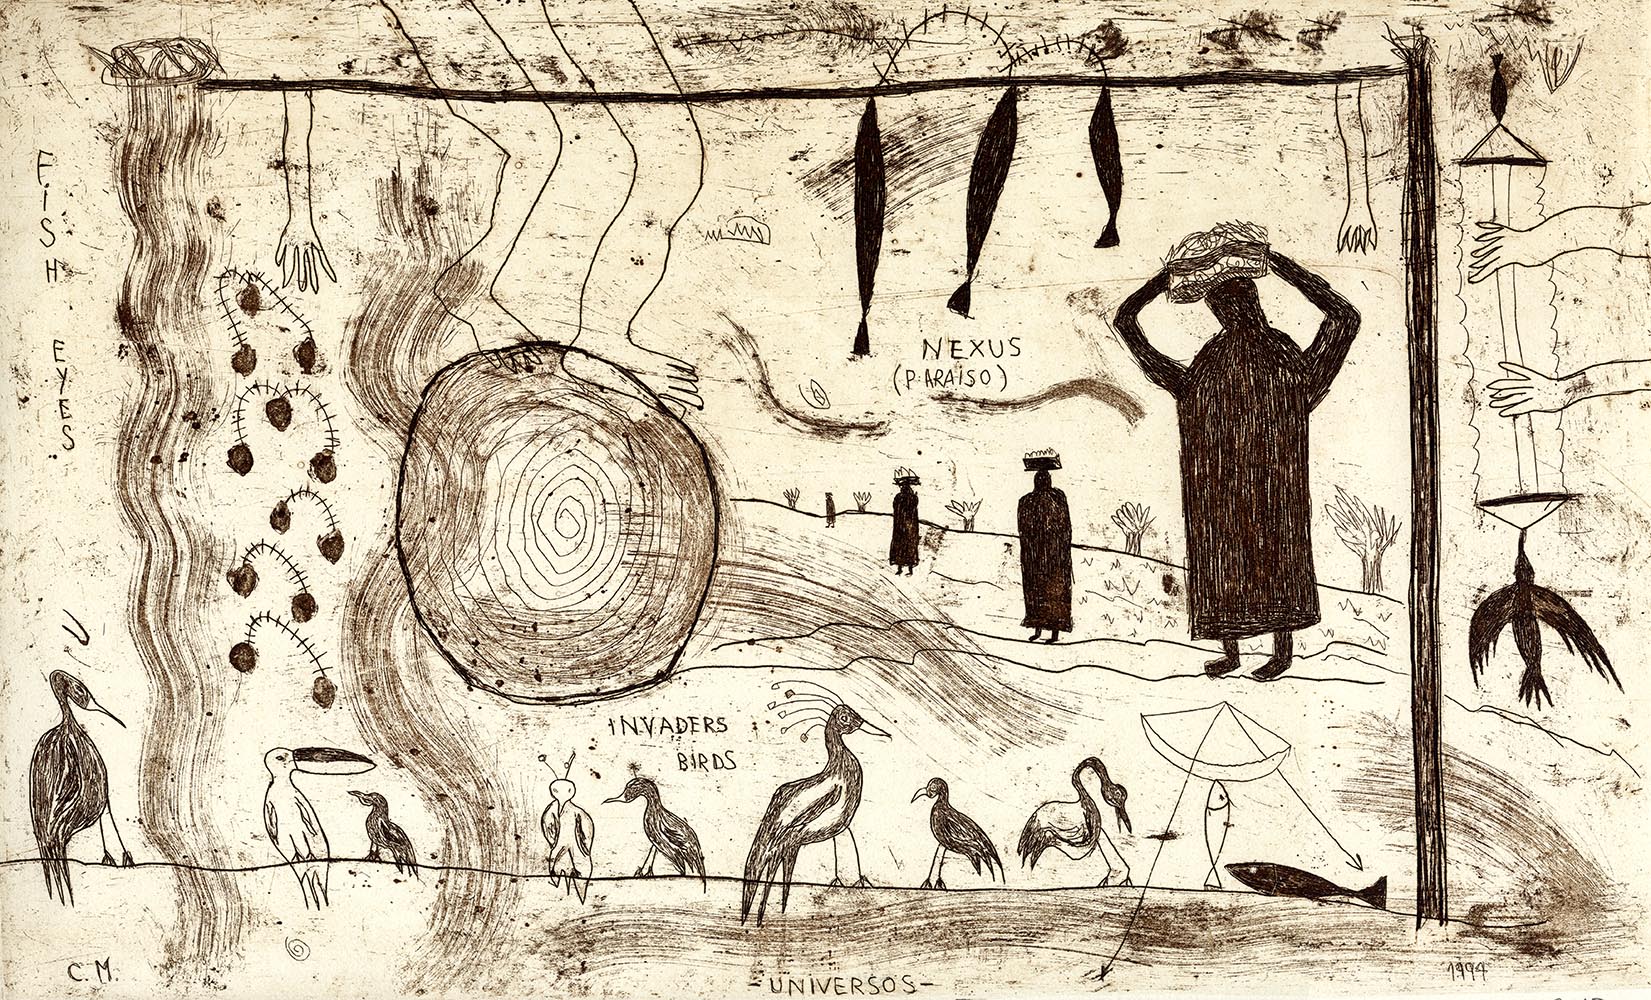 FiSH
EYES
NEXUS
(PARAÍSO)
INVADERS
BIRDS
C.M.
-UNIVERSOS-
1994